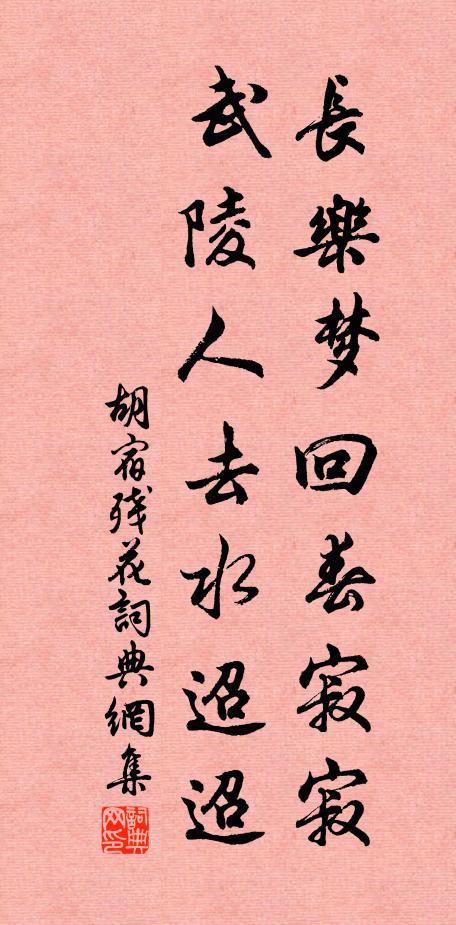 長樂梦回春寂寂
武陵人去水迢迢
胡宿残花詞典網集
詞典网印